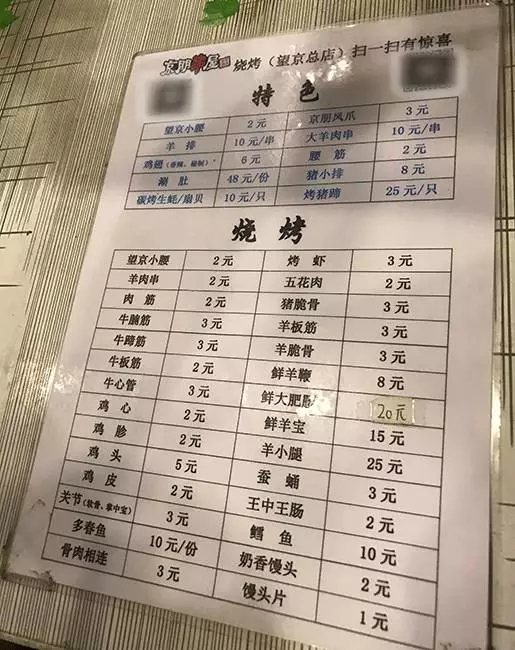 京朋 屋 烧烤（望京总店）扫一扫有惊喜
特 色
望京小腰 2元 京朋凤爪 3元
羊 排 10元/串 大羊肉串 10元/串
鸡翅（香辣、秘制） 6元 腰 筋 2元
涮 肚 48元/份 猪小排 8元
碳烤生蚝/扇贝 10元/只 烤猪蹄 25元/只
烧 烤
望京小腰 2元 烤 虾 3元
羊肉串 2元 五花肉 2元
肉 筋 2元 猪脆骨 3元
牛腩筋 3元 羊板筋 3元
牛蹄筋 3元 羊脆骨 3元
牛板筋 2元 鲜羊鞭 8元
牛心管 3元 鲜大肥 20元
鸡 心 2元 鲜羊宝 15元
鸡 胗 2元 羊小腿 25元
鸡 头 5元 蚕 蛹 3元
鸡 皮 2元 王中王肠 2元
关节（软骨、掌中宝） 3元 鳕 鱼 10元
多春鱼 10元/份 奶香馒头 2元
骨肉相连 3元 馒头片 1元